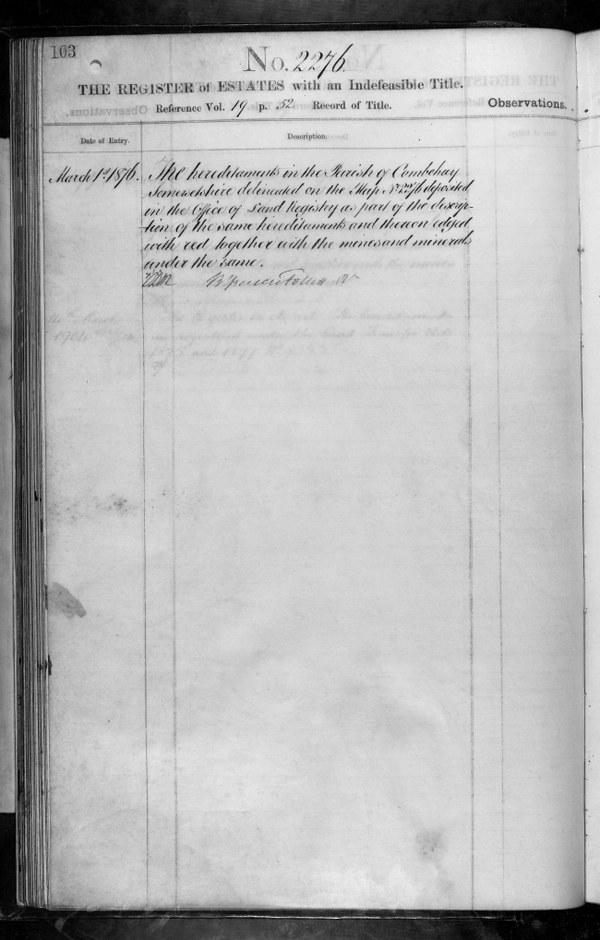 103
No. 2276.
THE REGISTER of ESTATES with an Indefeasible Title.
Reference Vol. 19 p. 52 Record of Title.
Observations.
Date of Entry.
Description.
March 1st 1876.
The hereditaments in the Parish of Combehay
Somersetshire delineated on the Map No 2276 deposited
in the Office of Land Registry as part of the descrip-
tion of the same hereditaments and thereon edged
with red together with the mines and minerals
under the same.